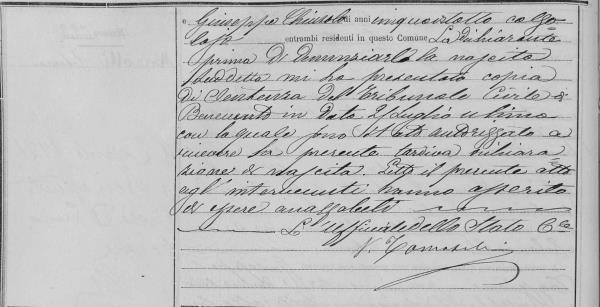 e Giuseppe Chiusolo di anni cinquantotto calzo=
laio entrambi residenti in questo Comune La dichiarante
prima di denunziarle la nascita
suddetta mi ha presentato copia
di sentenza del Tribunale Civile di
Benevento in data 2 luglio ultimo
con la quale sono stato autorizzato a
ricevere la presente tardiva dichiara
zione di nascita. Letto il presente atto
agl' intervenuti hanno asserito
di essere analfabeti
L'ufficiale dello Stato Cle
V. Tomaselli